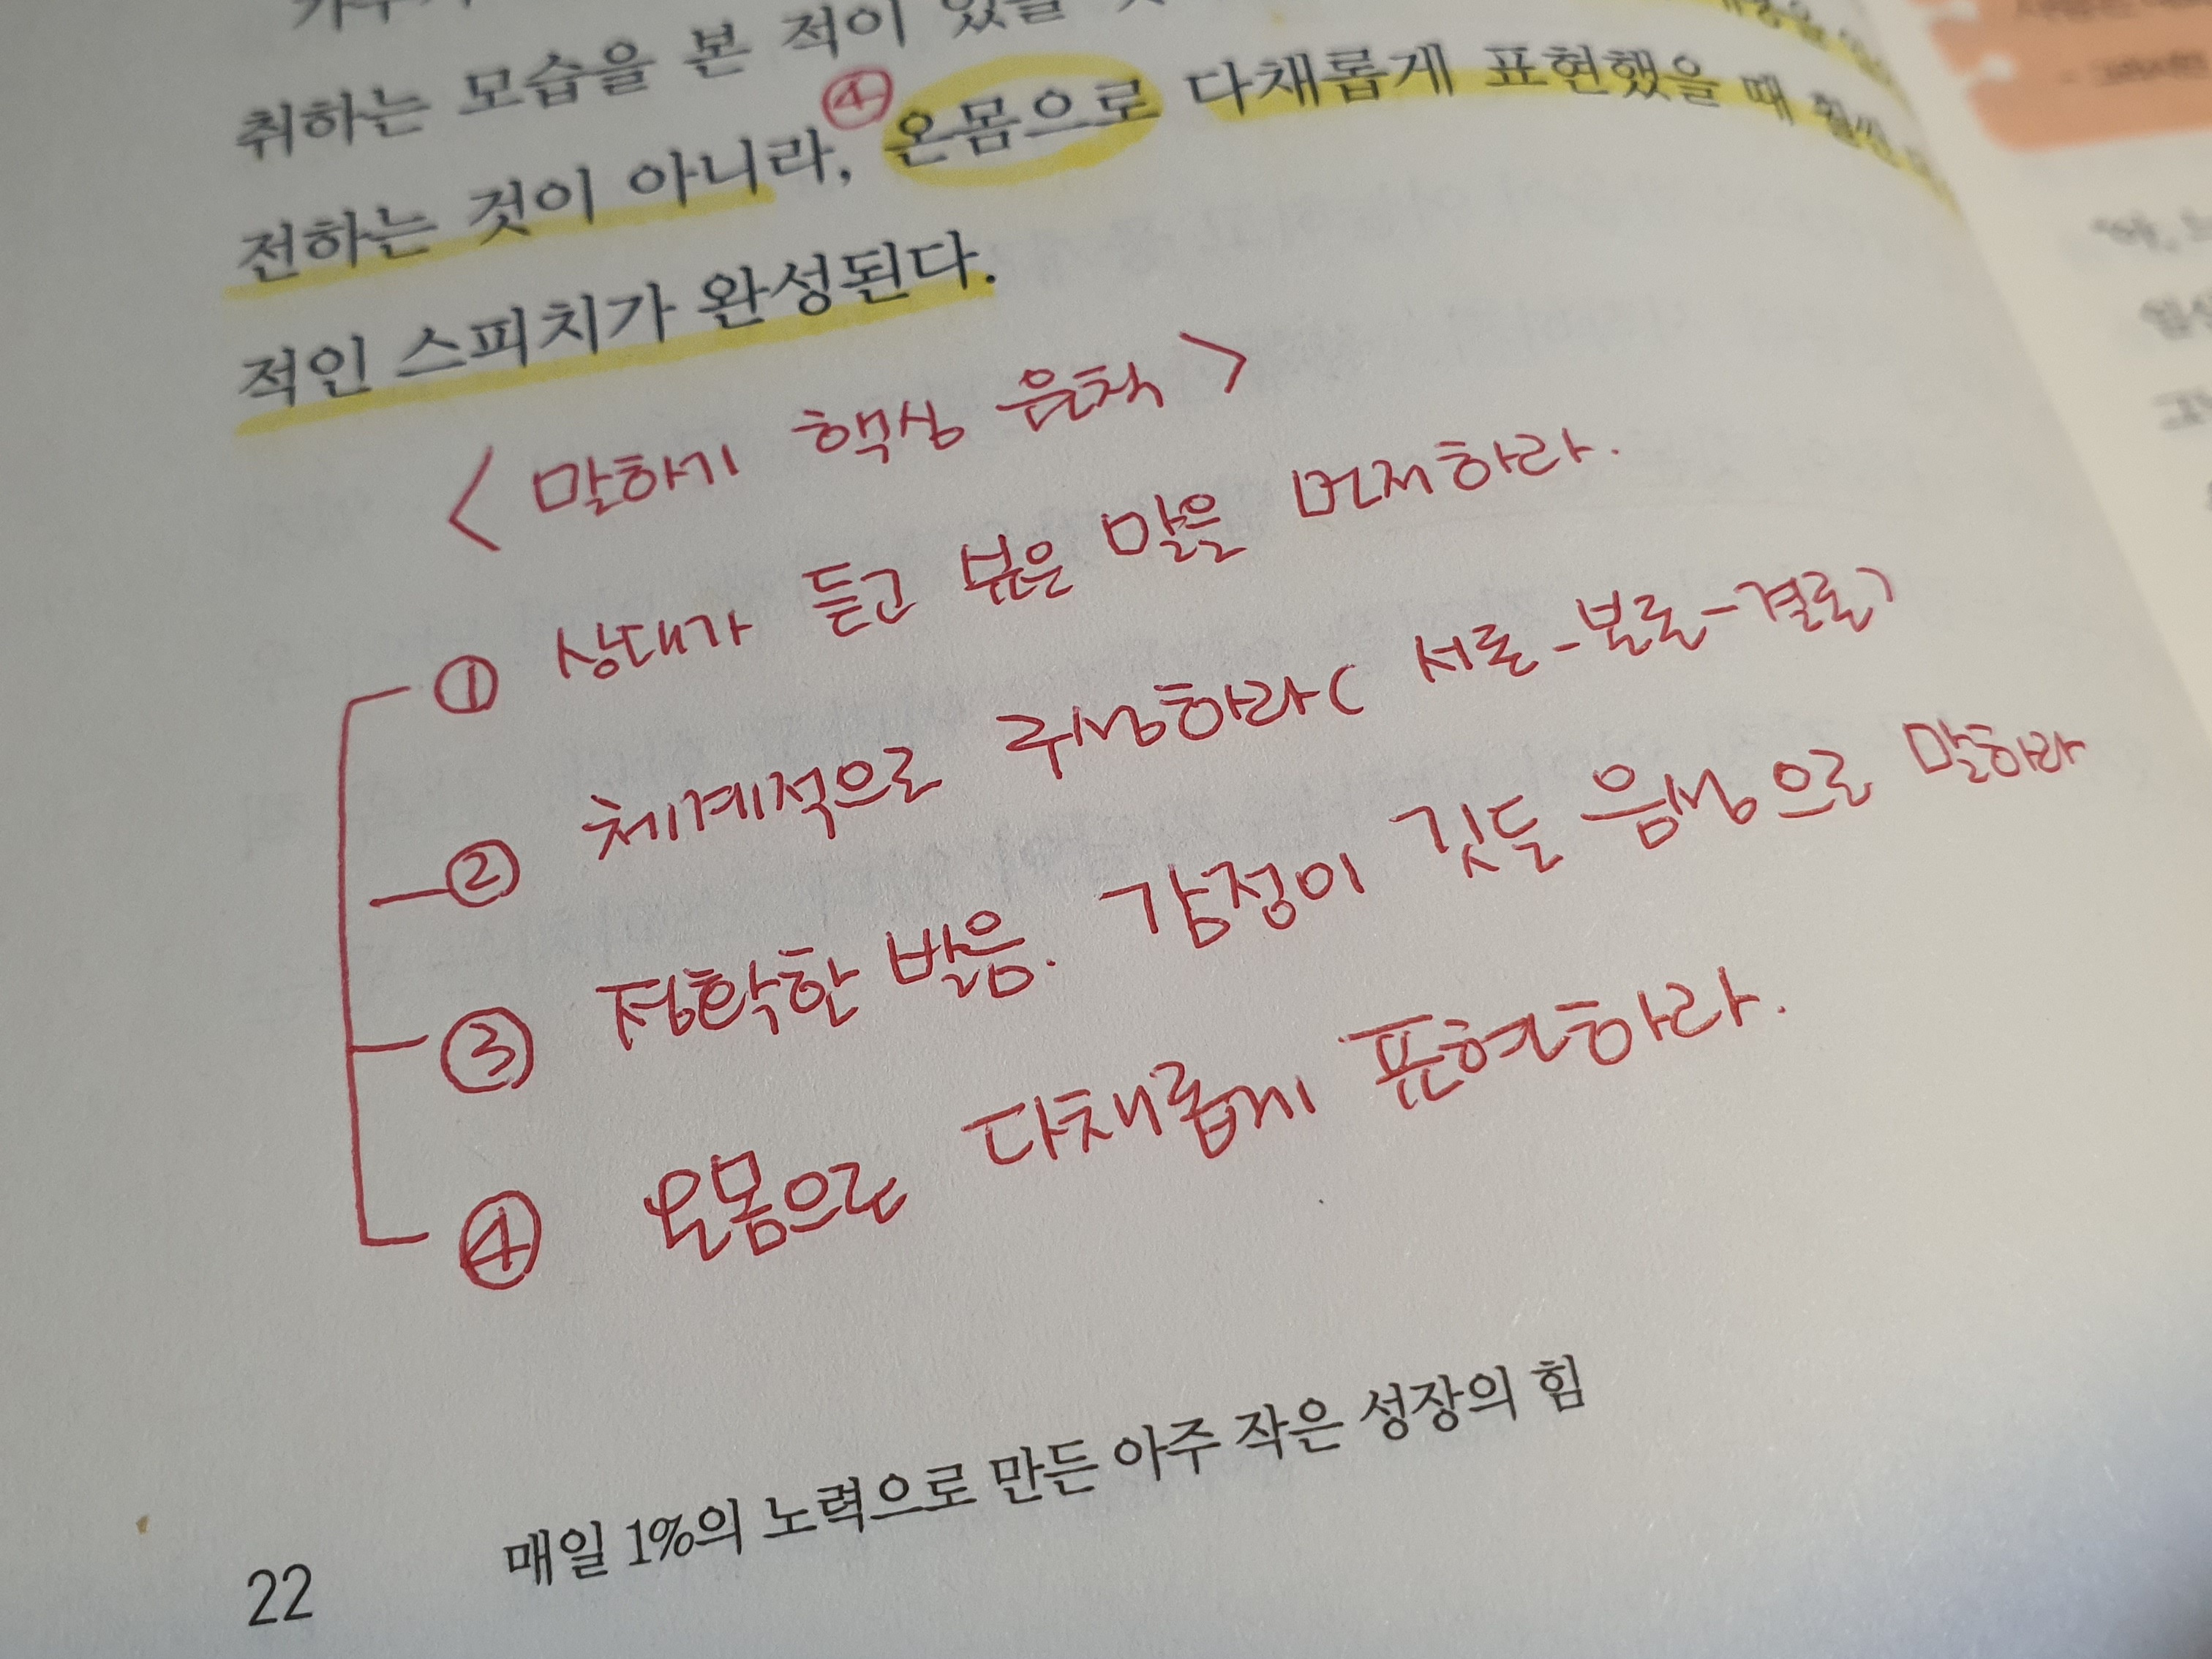 취하는 모습을 본 적이 있을
④
전하는 것이 아니라, 온몸으로 다채롭게 표현했을 때 훨씬
적인 스피치가 완성된다.
< 말하기 핵심 원칙 >
① 상대가 듣고 싶은 말을 먼저하라.
② 체계적으로 구성하라 ( 서론 - 본론 - 결론 )
③ 정확한 발음. 감정이 깃든 음성으로 말하라
④ 온몸으로 다채롭게 표현하라.
22 매일 1%의 노력으로 만든 아주 작은 성장의 힘